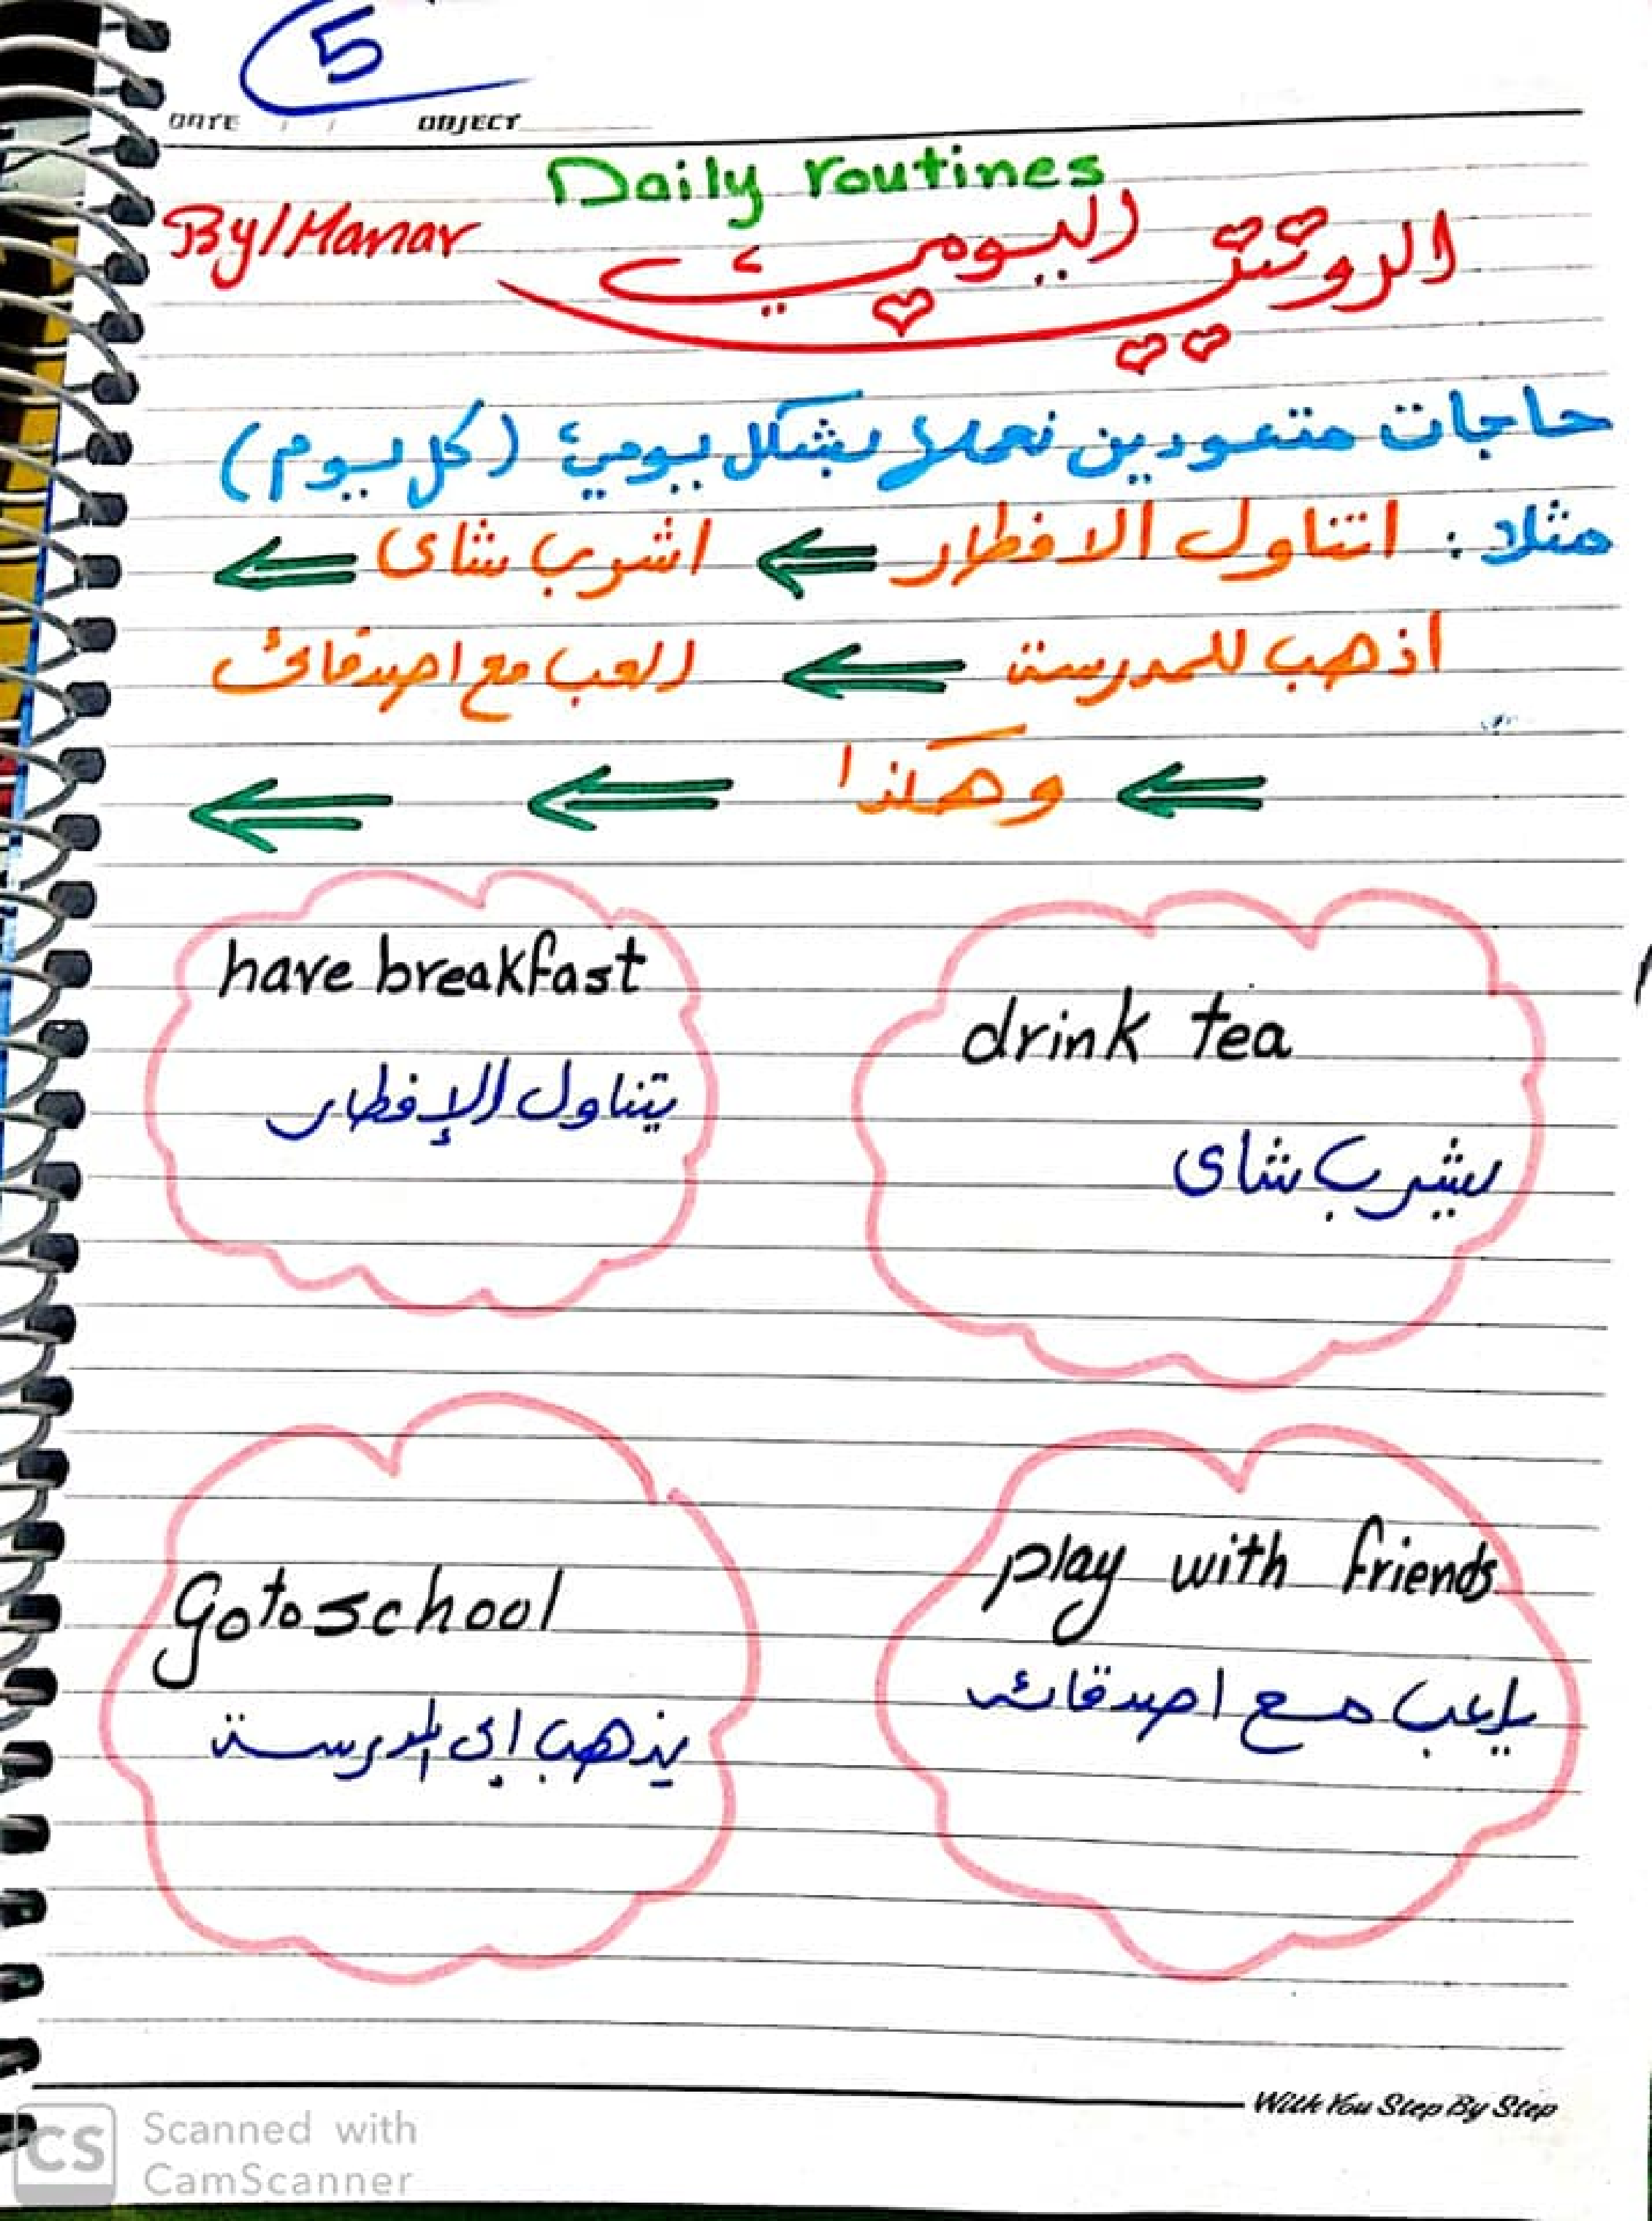 5
DATE / / OBJECT
Daily routines
By/Manar
الروتين اليومي
حاجات متعودين نعملها بشكل يومي (كل يوم)
مثلا : اتناول الافطار ⇐ اشرب شاى ⇐
اذهب للمدرسة ⇐ العب مع اصدقائ
⇐ وهكذا ⇐ ⇐
have breakfast
يتناول الإفطار
drink tea
يشرب شاى
Go to school
يذهب الى المدرسة
play with friends
يلعب مع اصدقائه
With You Step By Step
CS
Scanned with
CamScanner